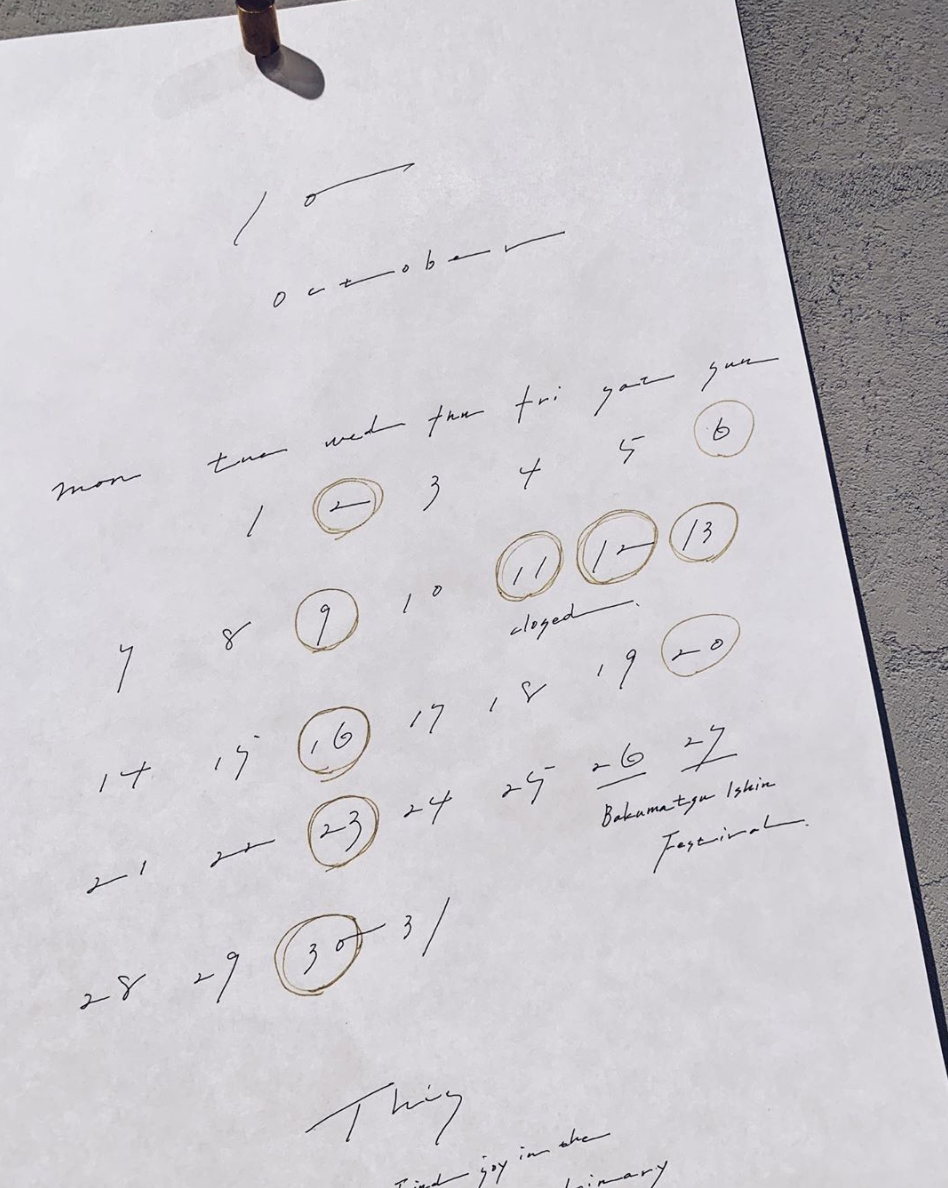 10
october
mon tue wed thu fri sat sun
1 2 3 4 5 6
7 8 9 10 11 12 13
closed.
14 15 16 17 18 19 20
21 22 23 24 25 26 27
Bakumatsu Ishin
Festival.
28 29 30 31
This
Find joy in the